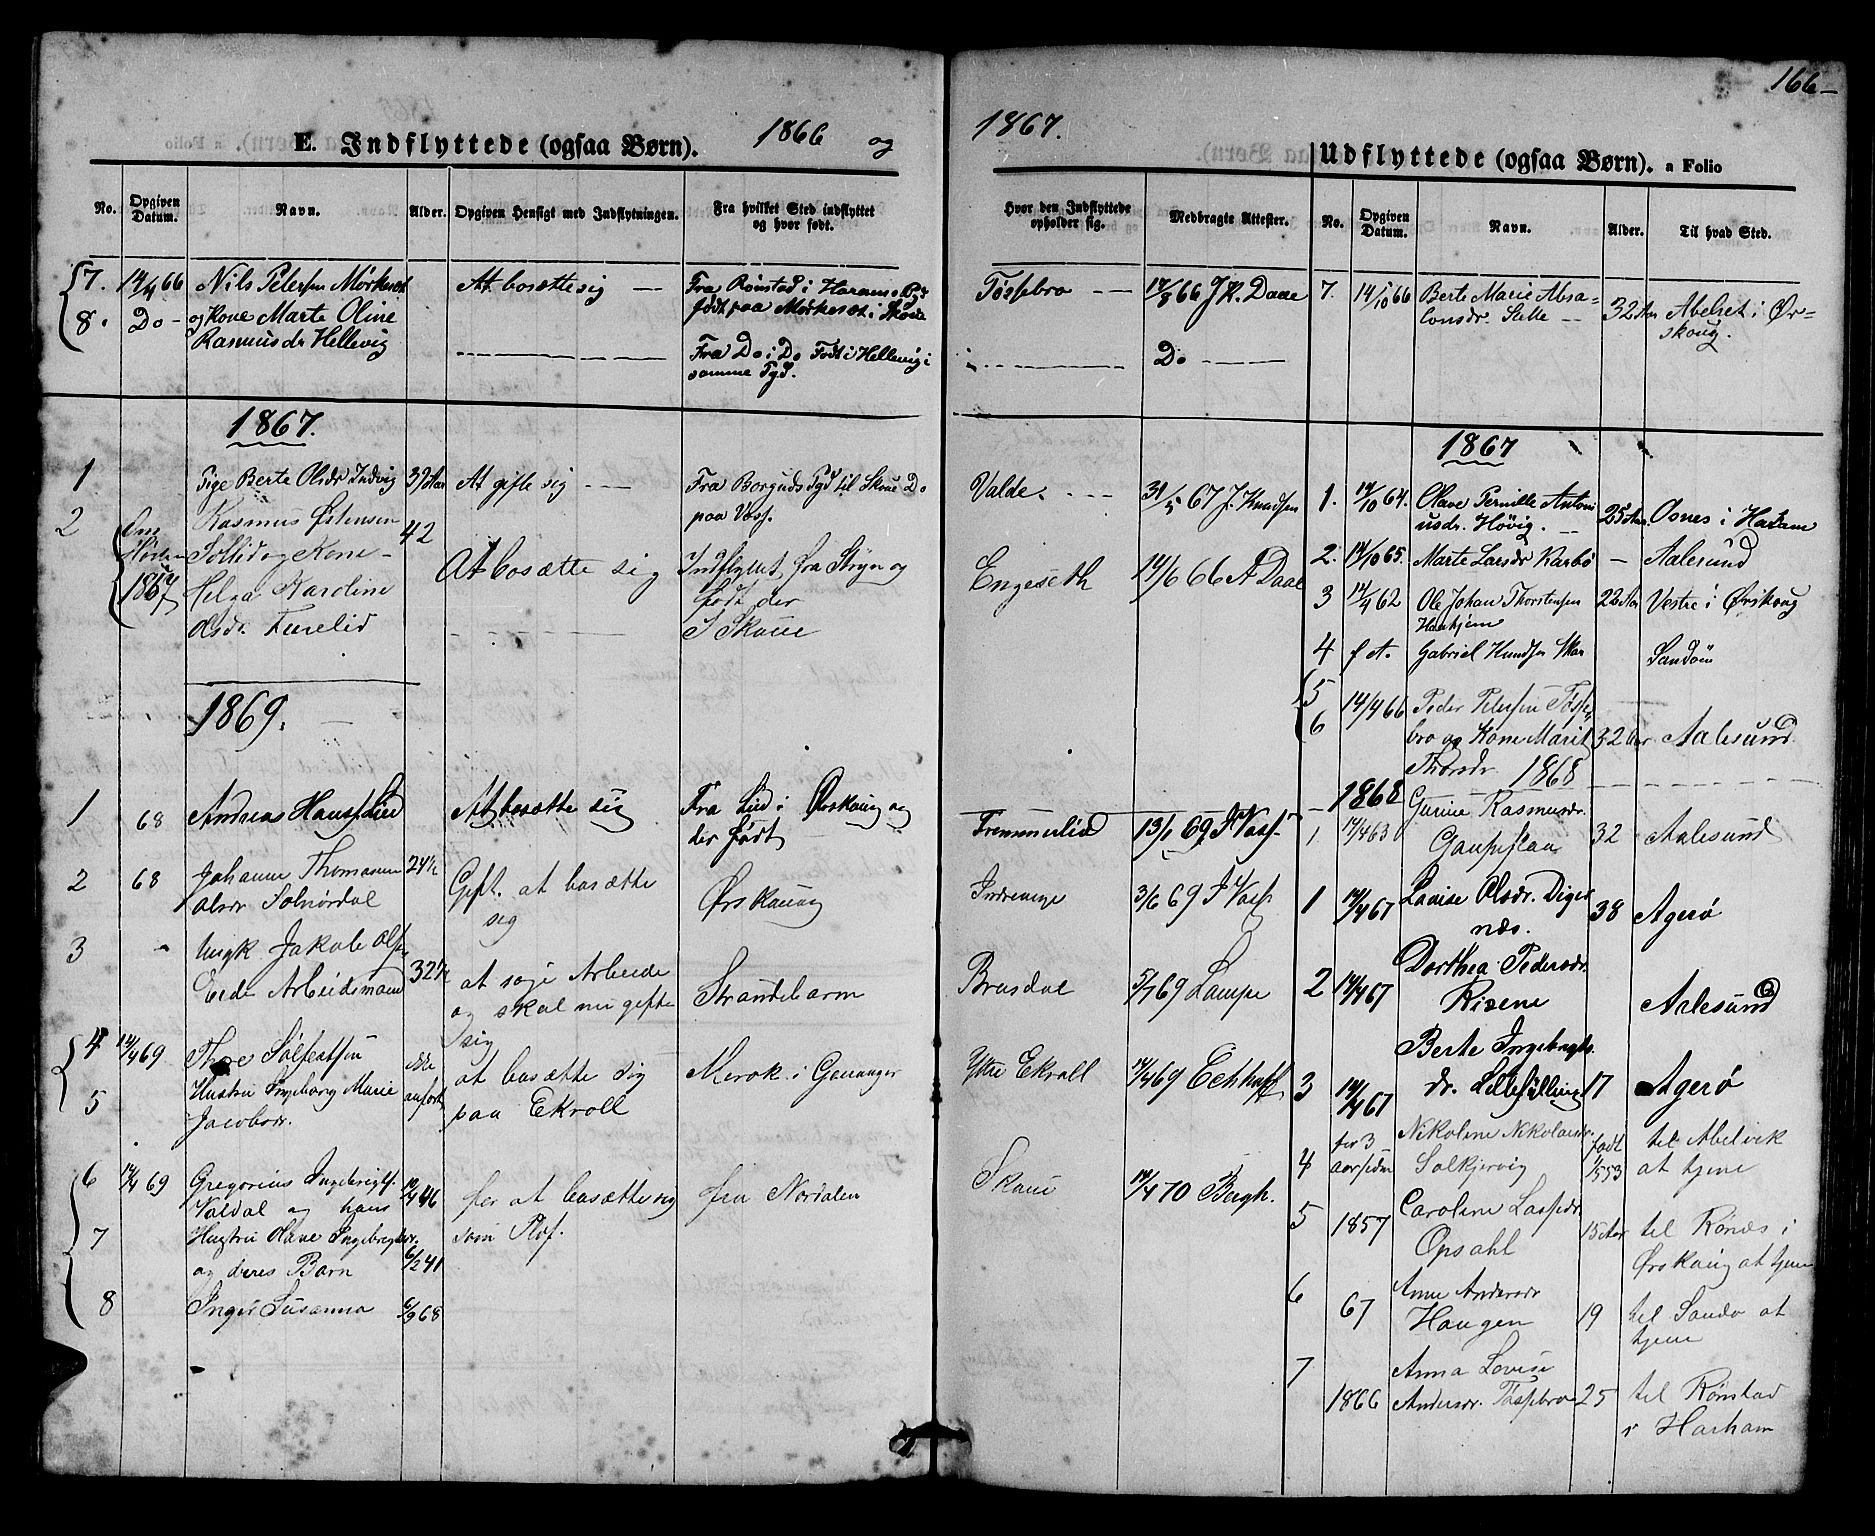 166
E. Indflyttede (ogsaa Børn). 1866 og
1867.
Udflyttede (ogsaa Børn). a Folio
No. Opgiven Datum. Navn. Alder. Opgiven Hensigt med Indflytningen. Fra hvilket Sted indflyttet og hvor født.
Hvor den Indflyttede opholder sig. Medbragte Attester. No. Opgiven Datum. Navn. Alder. Til hvad Sted.
7. 14/4 66 Nils Petersen Mørkeset At bosætte sig Fra Rønstad i Harams
8. Do og Kone Marte Oline født paa Mørkeset i Skoue
Rasmusdr Hellevig Fra Do i Do Født i Hellevig i
samme
1867.
1 Pige Berte Olsdr Indvig 39 Aar At gifte sig Fra Borgunds til Skoue Do
paa
2 Rasmus Østensen 42
Sollid og Kone At bosætte sig Indflyttet fra Stryn og
1867 Helga Karoline født der
Olsdr. Furelid I Skoue
1869.
1 68 Andreas Hansen Lied At bosætte sig Fra Lied i Ørskoug og
der født
2 68 Johanne Thomasine 24½ Gift. at bosætte Ørskoug
Olsdr Solnørdal sig
3 Ungk Jakob Olsen
Eide Arbeidsmand 32½ at søge Arbeide Strandebarm
og skal nu gifte
sig
4 14/4 69 Thore Sølfestsen ikke at bosætte sig Merok i Geranger
5 Hustru Ingeborg Marie anført paa Ekroll
Jacobsdr.
6 14/4 69 Gregorius Ingebrigts. 10/4 46 for at bosætte sig fra Nordalen
Valdal og hans som
7 Hustru Olave Ingebrigtsdr. 6/2 41
og deres Barn
8 Inger Susanna 6/9 68
Tøssebro 14/8 66 J. K. Daae
Do
Valde. 31/5 67 J. Knudsen
Engeseth 14/6 66 A Daae
Fremmerlid 13/1 69 J Vass
3/6 69 J Vass
Brusdal 5/7 69 Lampe
Ytre Ekroll 14/4 69 Eckhoff
Skoue 14/4 70 Bergh.
7. 14/10 66 Berte Marie Absa-
lonsdr. Stette 32 Aar Abelset i Ør-
skoug.
1867
1. 14/10 64. Olave Pernille Antoni
usdr. Høvig. 25 Aar Osnes i Haram
2. 14/10 65. Marte Larsdr Karbø Aalesund
3 14/4 62 Ole Johan Thorstensen 22 Aar Vestre i Ørskoug
4 Gabriel Knudsen Skar Sandøe
5 14/4 66 Peder Petersen Tøsse
6 bro og Kone Marit 32 Aar Aalesund
Thorsdr. 1868
1868 Gurine Rasmusdr.
1. 14/4 63 Gaupeflaa 32 Aalesund
1 14/4 67 Lovise Olsdr. Diger
næs. 38 Agerø
2 14/4 67 Dorthea Pedersdr.
Risene Aalesund
3 14/4 67 Berte Ingebrigts.
dr. Lillefylling 17 Agerø
4 for 3 aar siden Nikoline Nikolaisdr.
Solkjervig født til Abelvik
at tjene
5 1857 Caroline Lassedr.
Opsahl 15 Aar til Rønes i
Ørskoug at tjene
6 67 Anne Andersdr
Haugen 19 til Sandø at
tjene
7 Anna Lovise
1866 Andersdr. Tøssebro 25 til Rønstad
i Harham